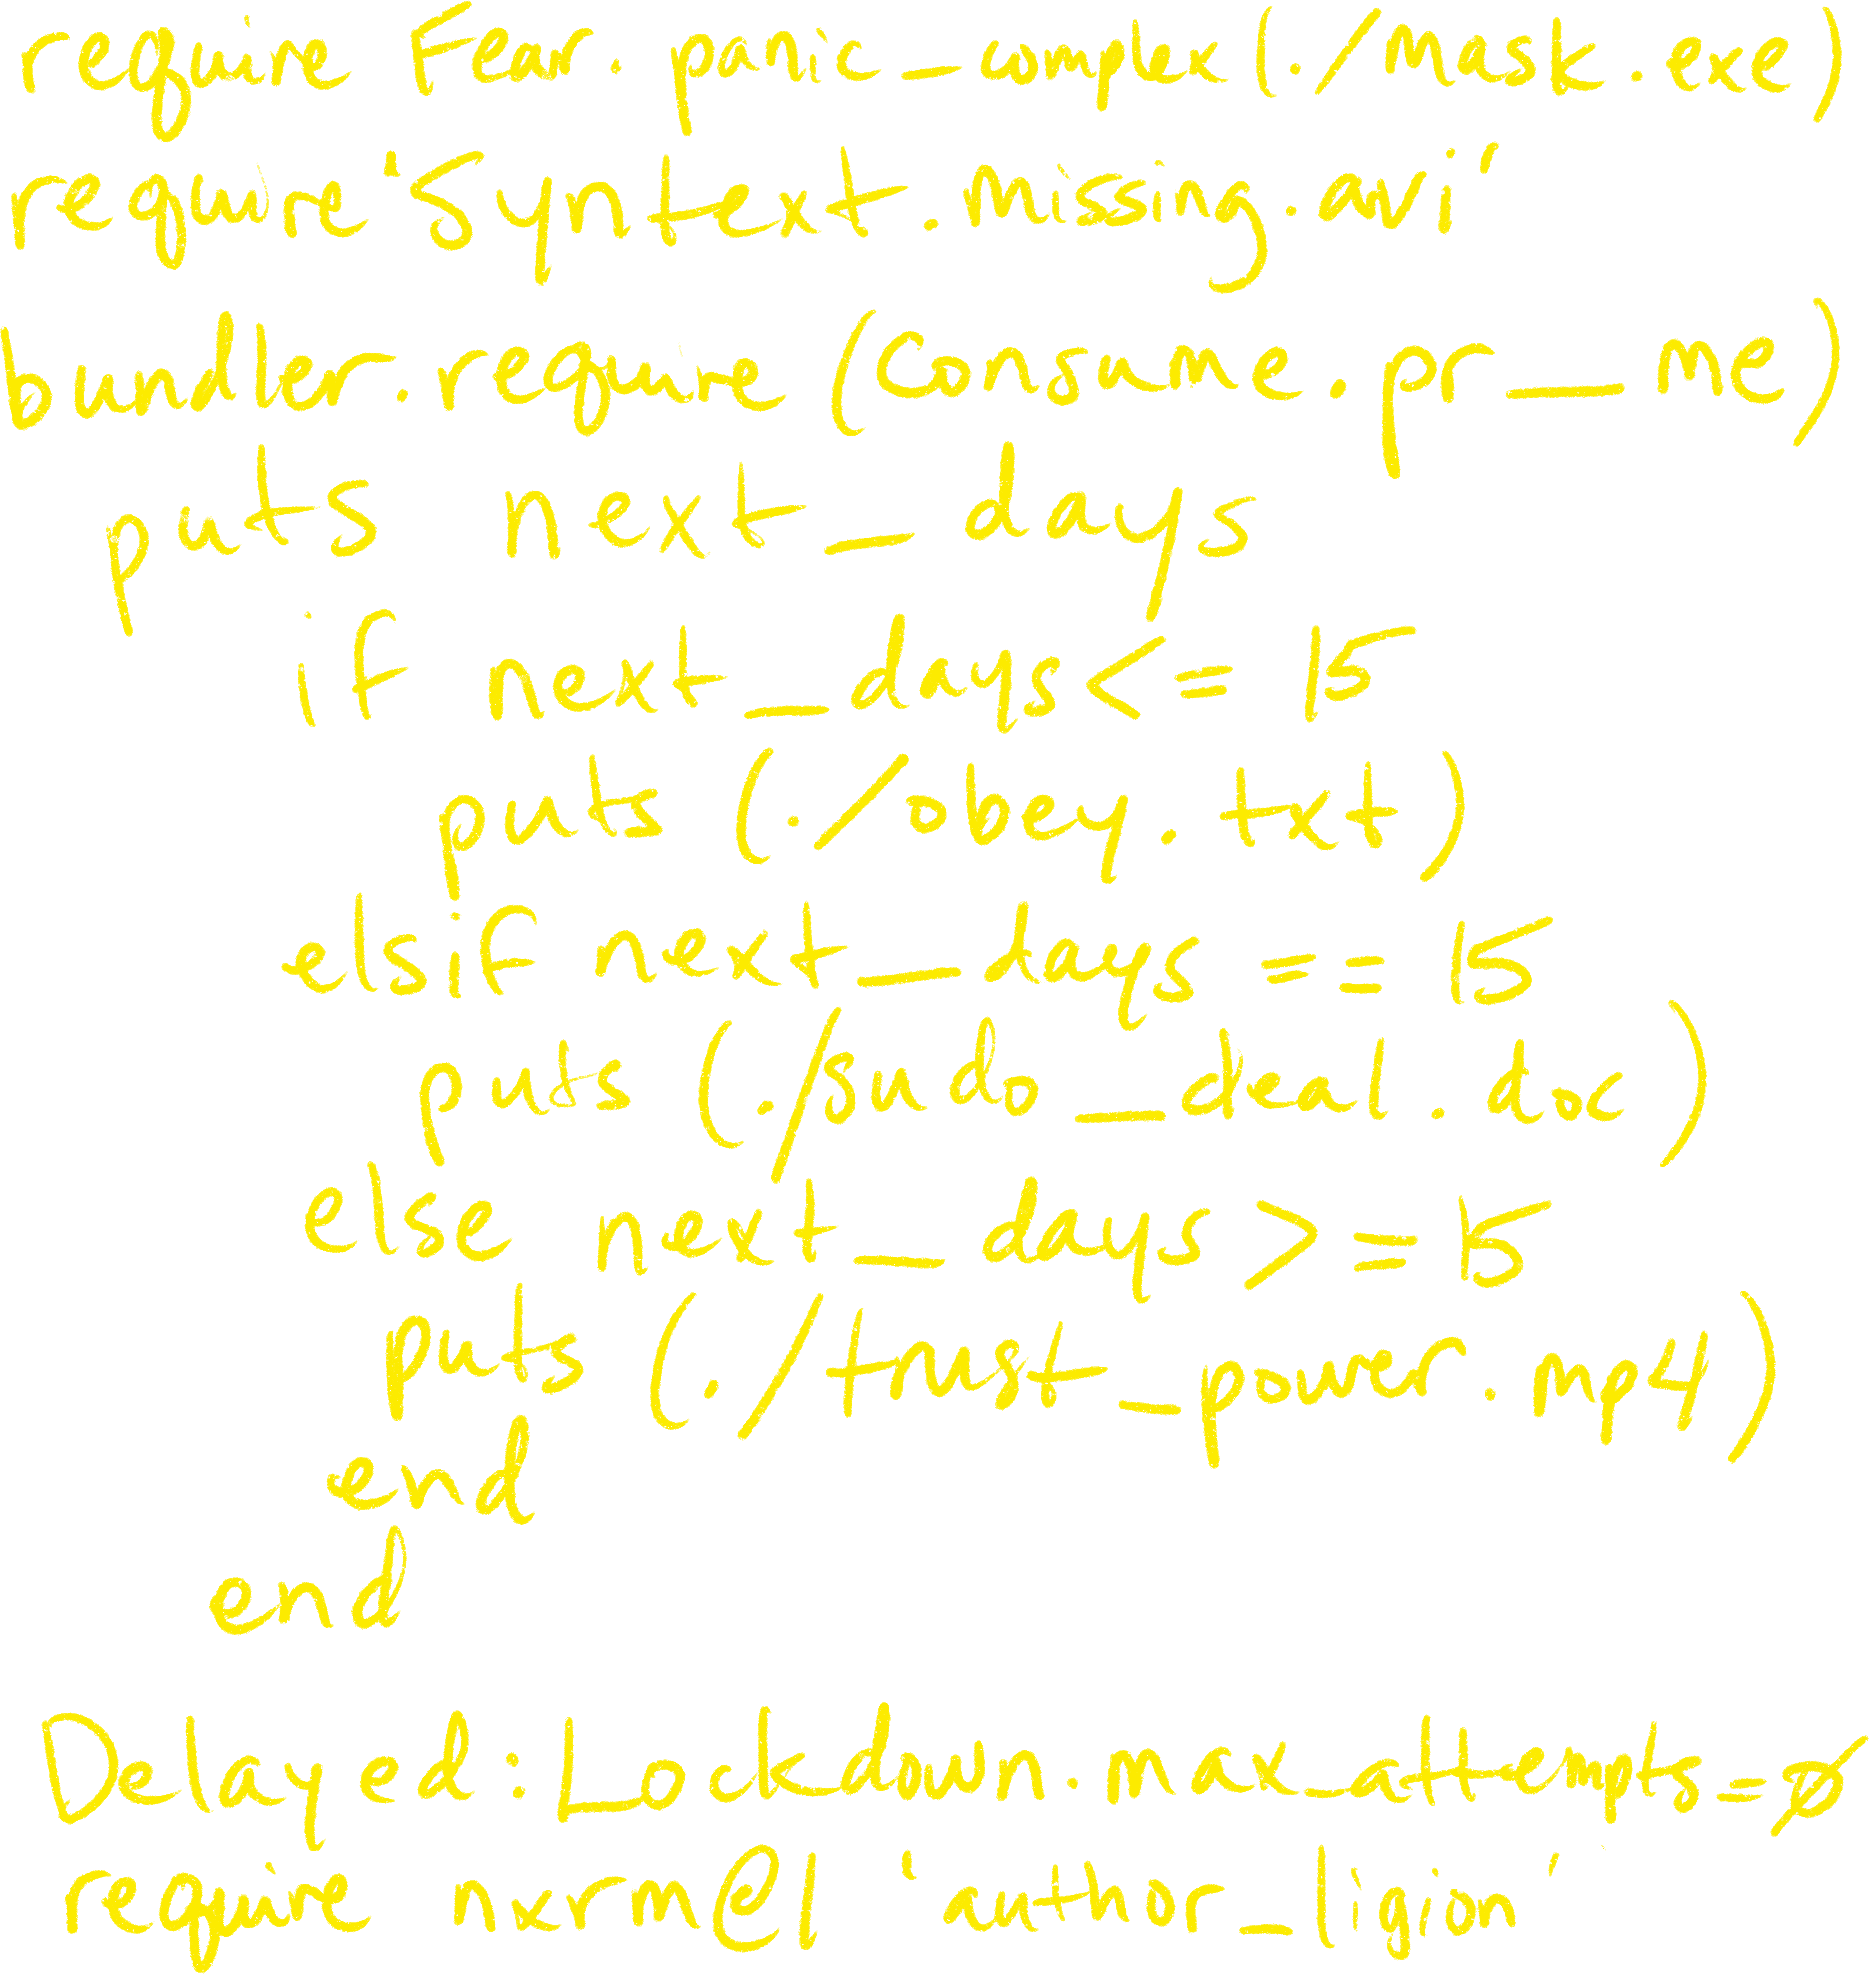 require Fear.panic_complex(./Mask.exe)
require '5yntext.missing.avi'
bundler.require (Consume.pr_me)
puts next_days
if next_days<=15
puts (./obey.txt)
elsif next_days == 15
puts (./sudo_deal.doc)
else next_days >= 15
puts (./trust_power.mp4)
end
end
Delayed:Lockdown.max_attempts=ø
require nxrm@l 'author_ligion'